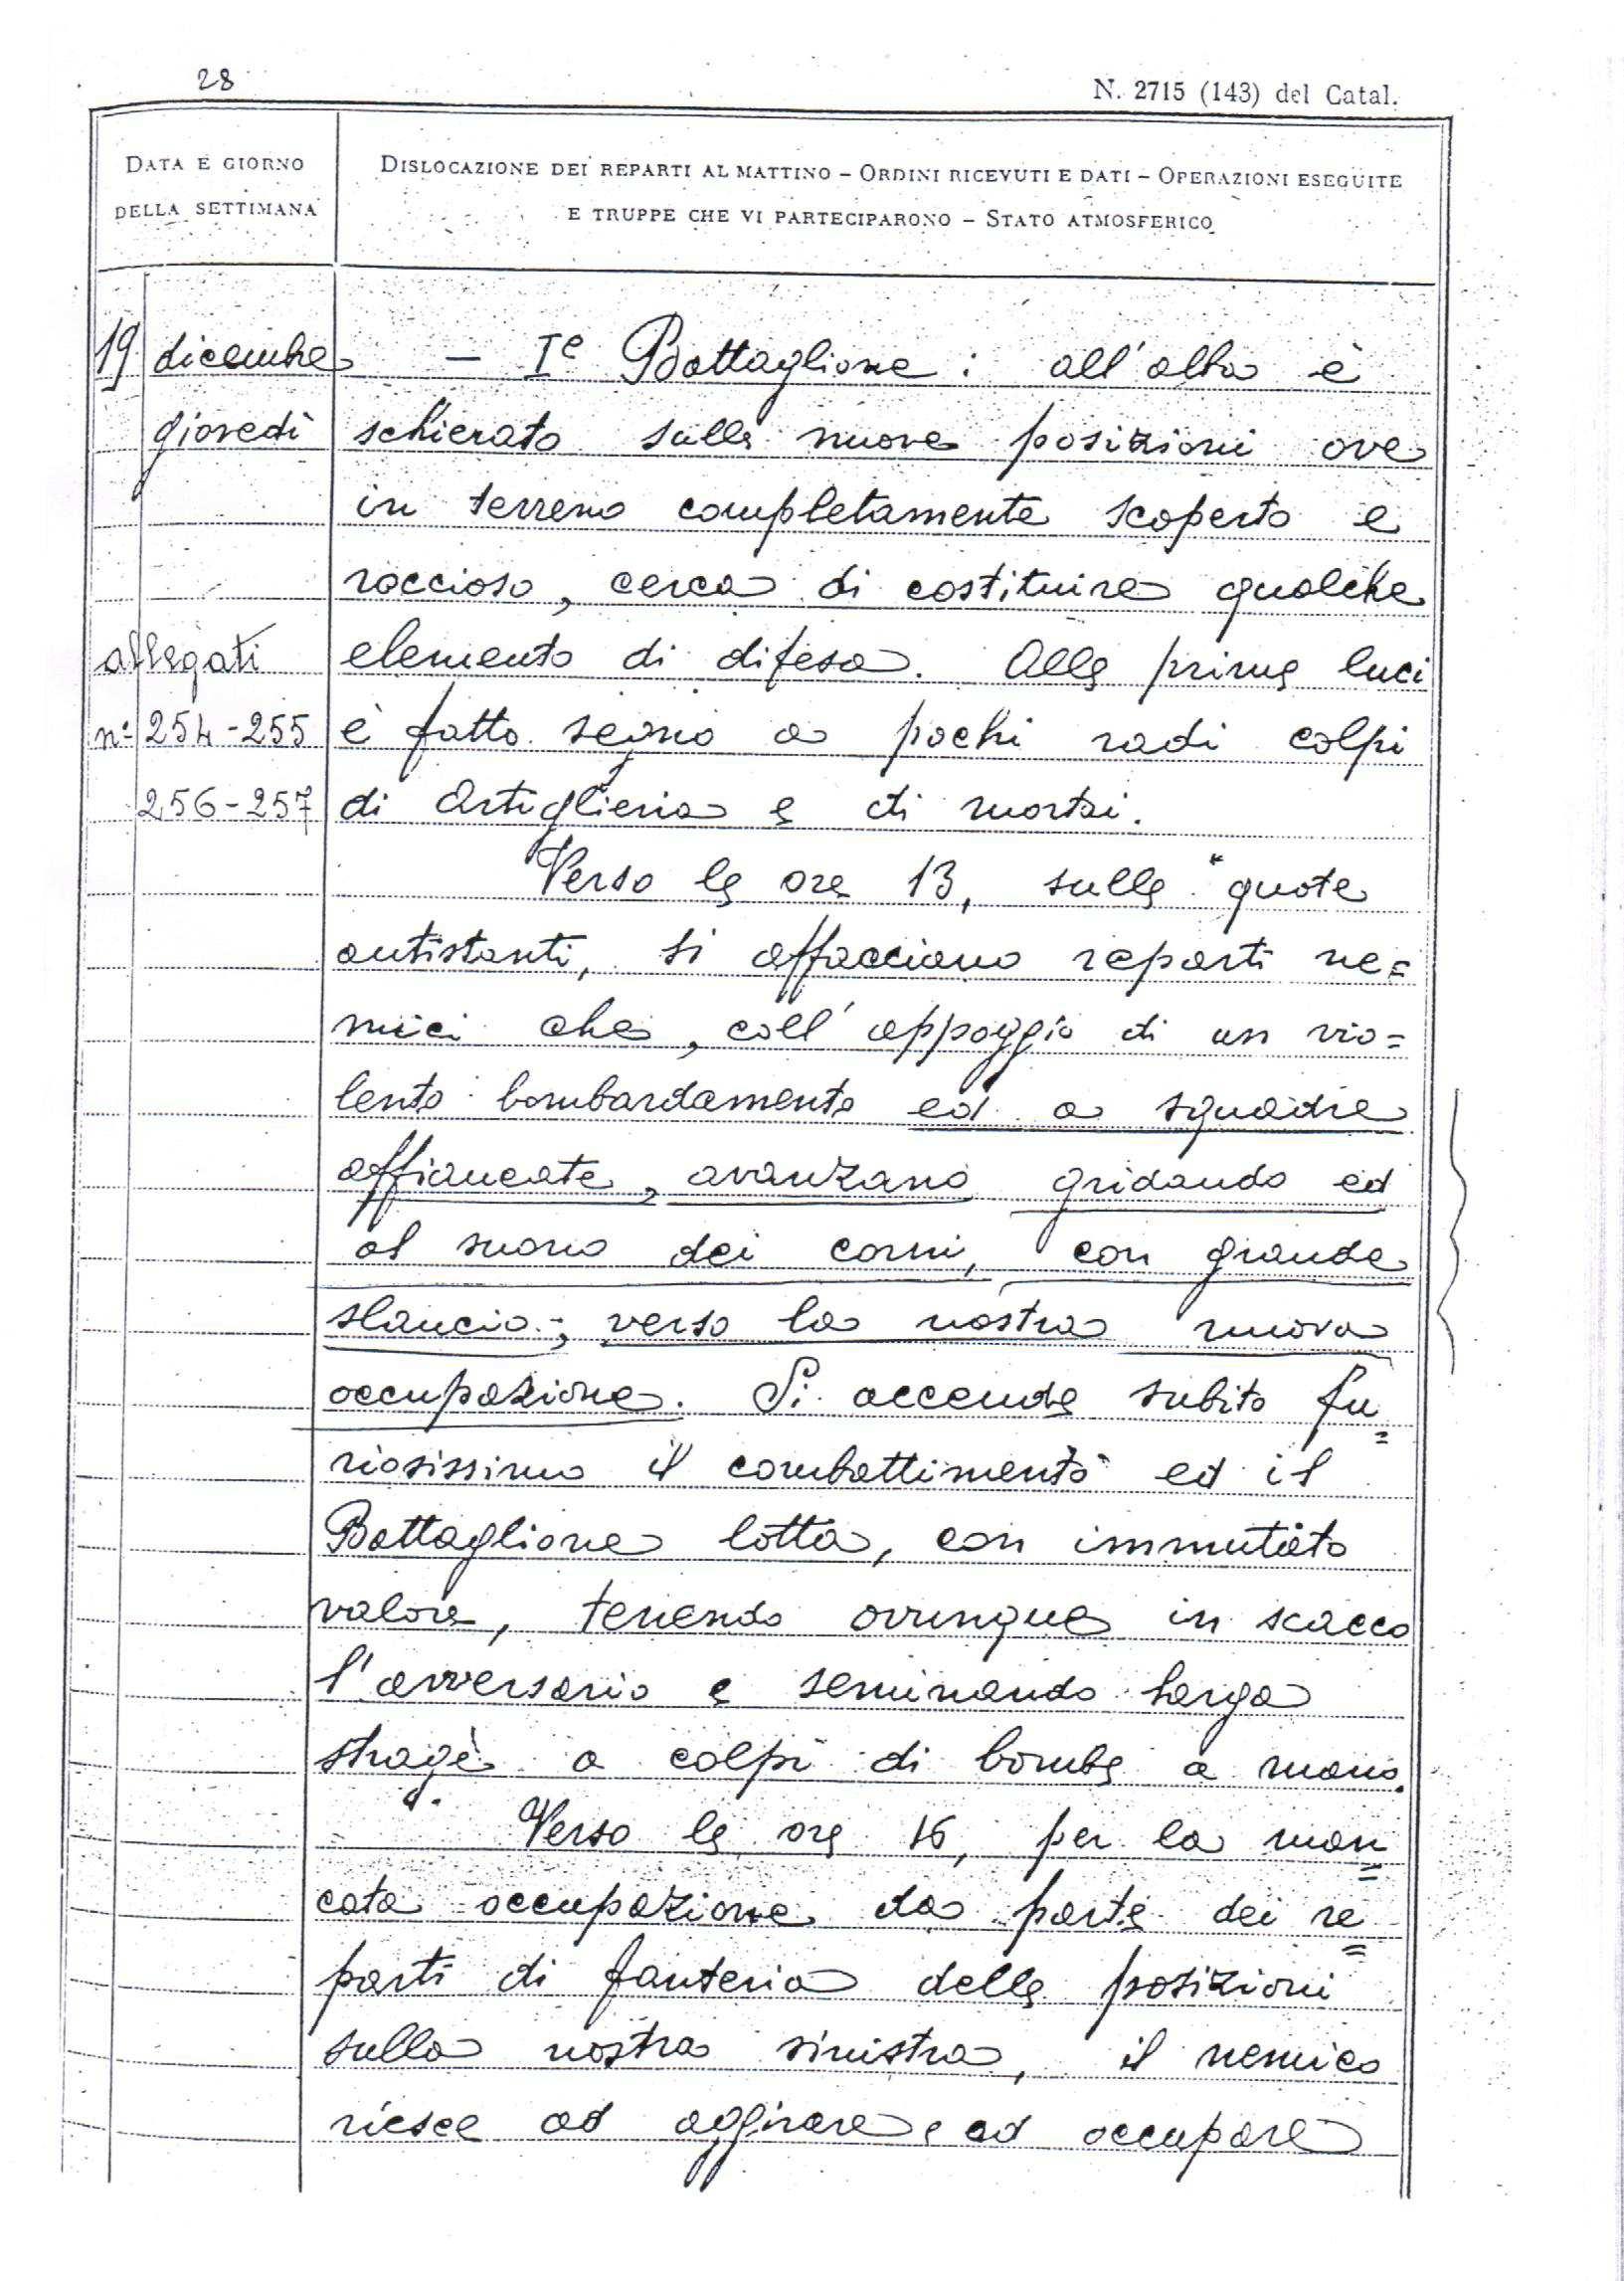 28
N. 2715 (143) del Catal.
DATA E GIORNO
DELLA SETTIMANA
DISLOCAZIONE DEI REPARTI AL MATTINO – ORDINI RICEVUTI E DATI – OPERAZIONI ESEGUITE
E TRUPPE CHE VI PARTECIPARONO – STATO ATMOSFERICO
19 dicembre – I° Battaglione: all'alba è
giovedì schierato sulle nuove posizioni ove
in terreno completamente scoperto e
roccioso, cerca di costituire qualche
allegati elemento di difesa. Alle prime luci
n° 254-255 è fatto segno a pochi radi colpi
256-257 di Artiglieria e di mortai.
Verso le ore 13, sulle quote
antistanti, si affacciano reparti ne=
mici che, coll'appoggio di un vio=
lento bombardamento ed a squadre
affiancate, avanzano gridando ed
al suono dei corni, con grande
slancio, verso la nostra nuova
occupazione. Si accende subito fu=
riosissimo il combattimento ed il
Battaglione lotta, con immutato
valore, tenendo ovunque in scacco
l'avversario e seminando larga
strage a colpi di bombe a mano.
Verso le ore 16, per la man=
cata occupazione da parte dei re=
parti di fanteria delle posizioni
sulla nostra sinistra, il nemico
riesce ad aggirare e ad occupare